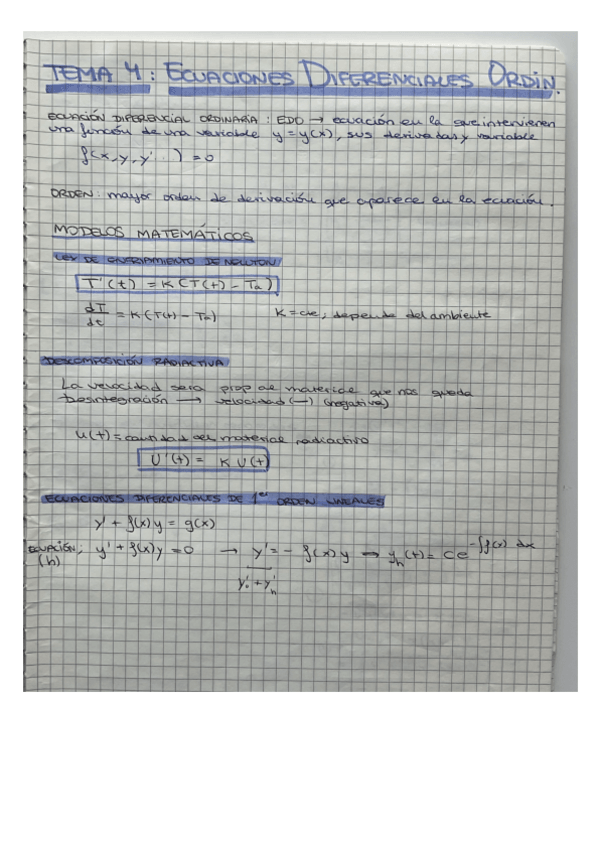 TEMA 4: ECUACIONES DIFERENCIALES ORDIN.
ECUACIÓN DIFERENCIAL ORDINARIA: EDO → ecuación en la que intervienen
una función de una variable y=y(x), sus derivadas y variable
f(x, y, y'...) = 0
ORDEN: mayor orden de derivación que aparece en la ecuación.
MODELOS MATEMÁTICOS
LEY DE ENFRIAMIENTO DE NEWTON
T'(t) = K(T(t) - Ta)
dT/dt = K(T(t) - Ta) K = cte, depende del ambiente
DESCOMPOSICIÓN RADIACTIVA
La velocidad sera prop al material que nos queda
Desintegración → velocidad (-) (negativa)
u(t) = cantidad del material radiactivo
U'(t) = K U(t)
ECUACIONES DIFERENCIALES DE 1er ORDEN LINEALES
y' + f(x)y = g(x)
ECUACIÓN: y' + f(x)y = 0 → y' = - f(x)y → yh(t) = Ce^-∫f(x) dx
(h)